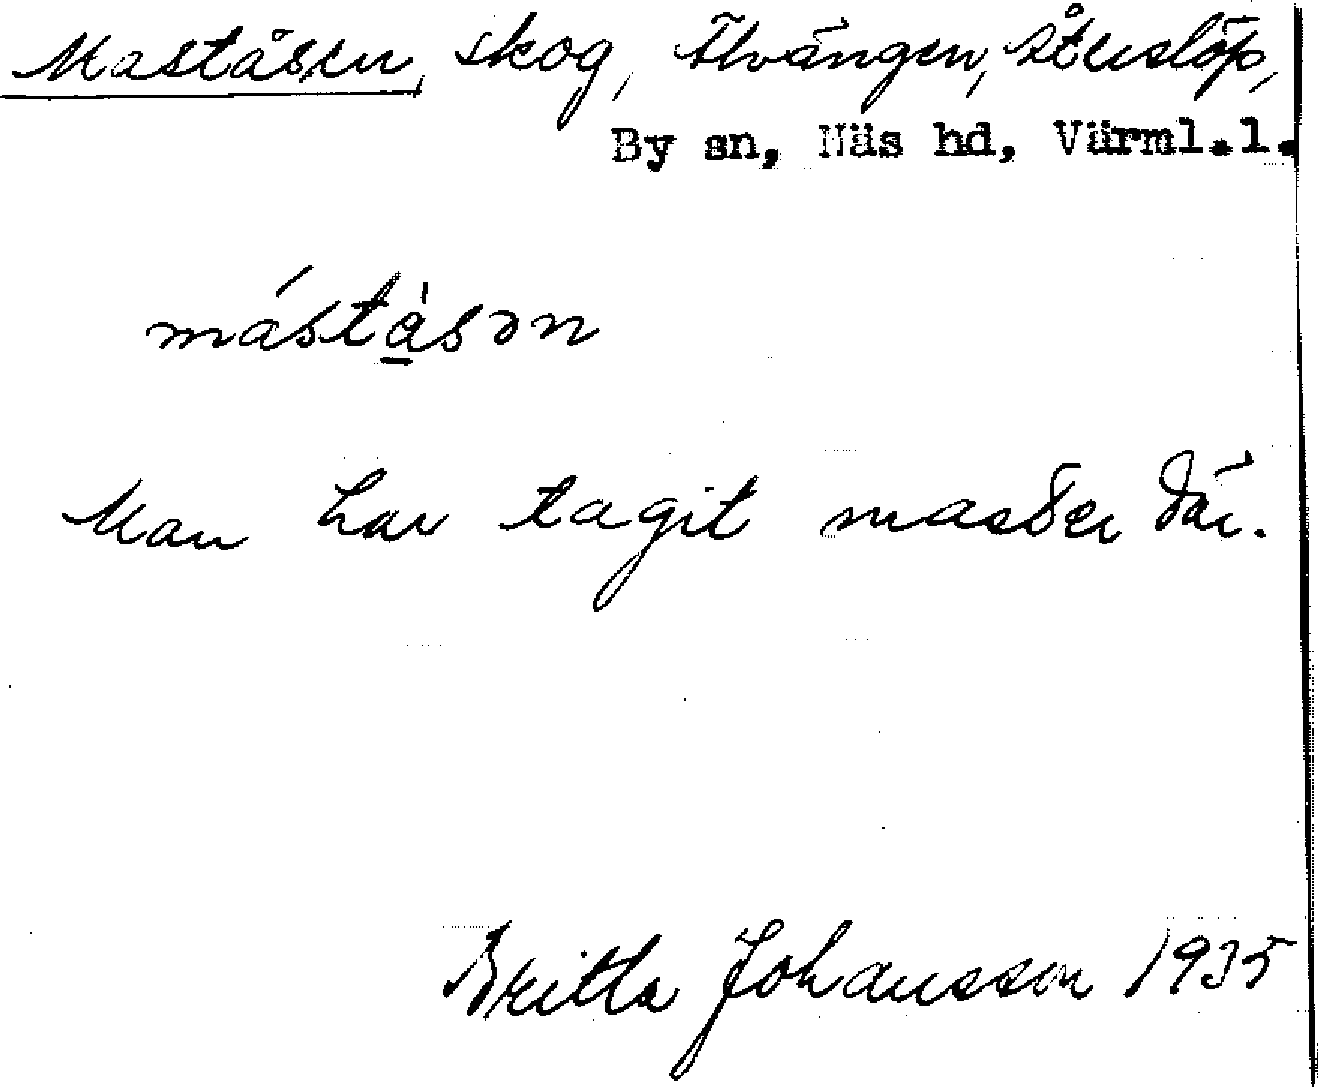 Maståsen, skog, Älvängen, Återslöp,
By sn, Näs hd, Värml.l.
mástàsən
Man har tagit master där.
Britta Johansson 1935